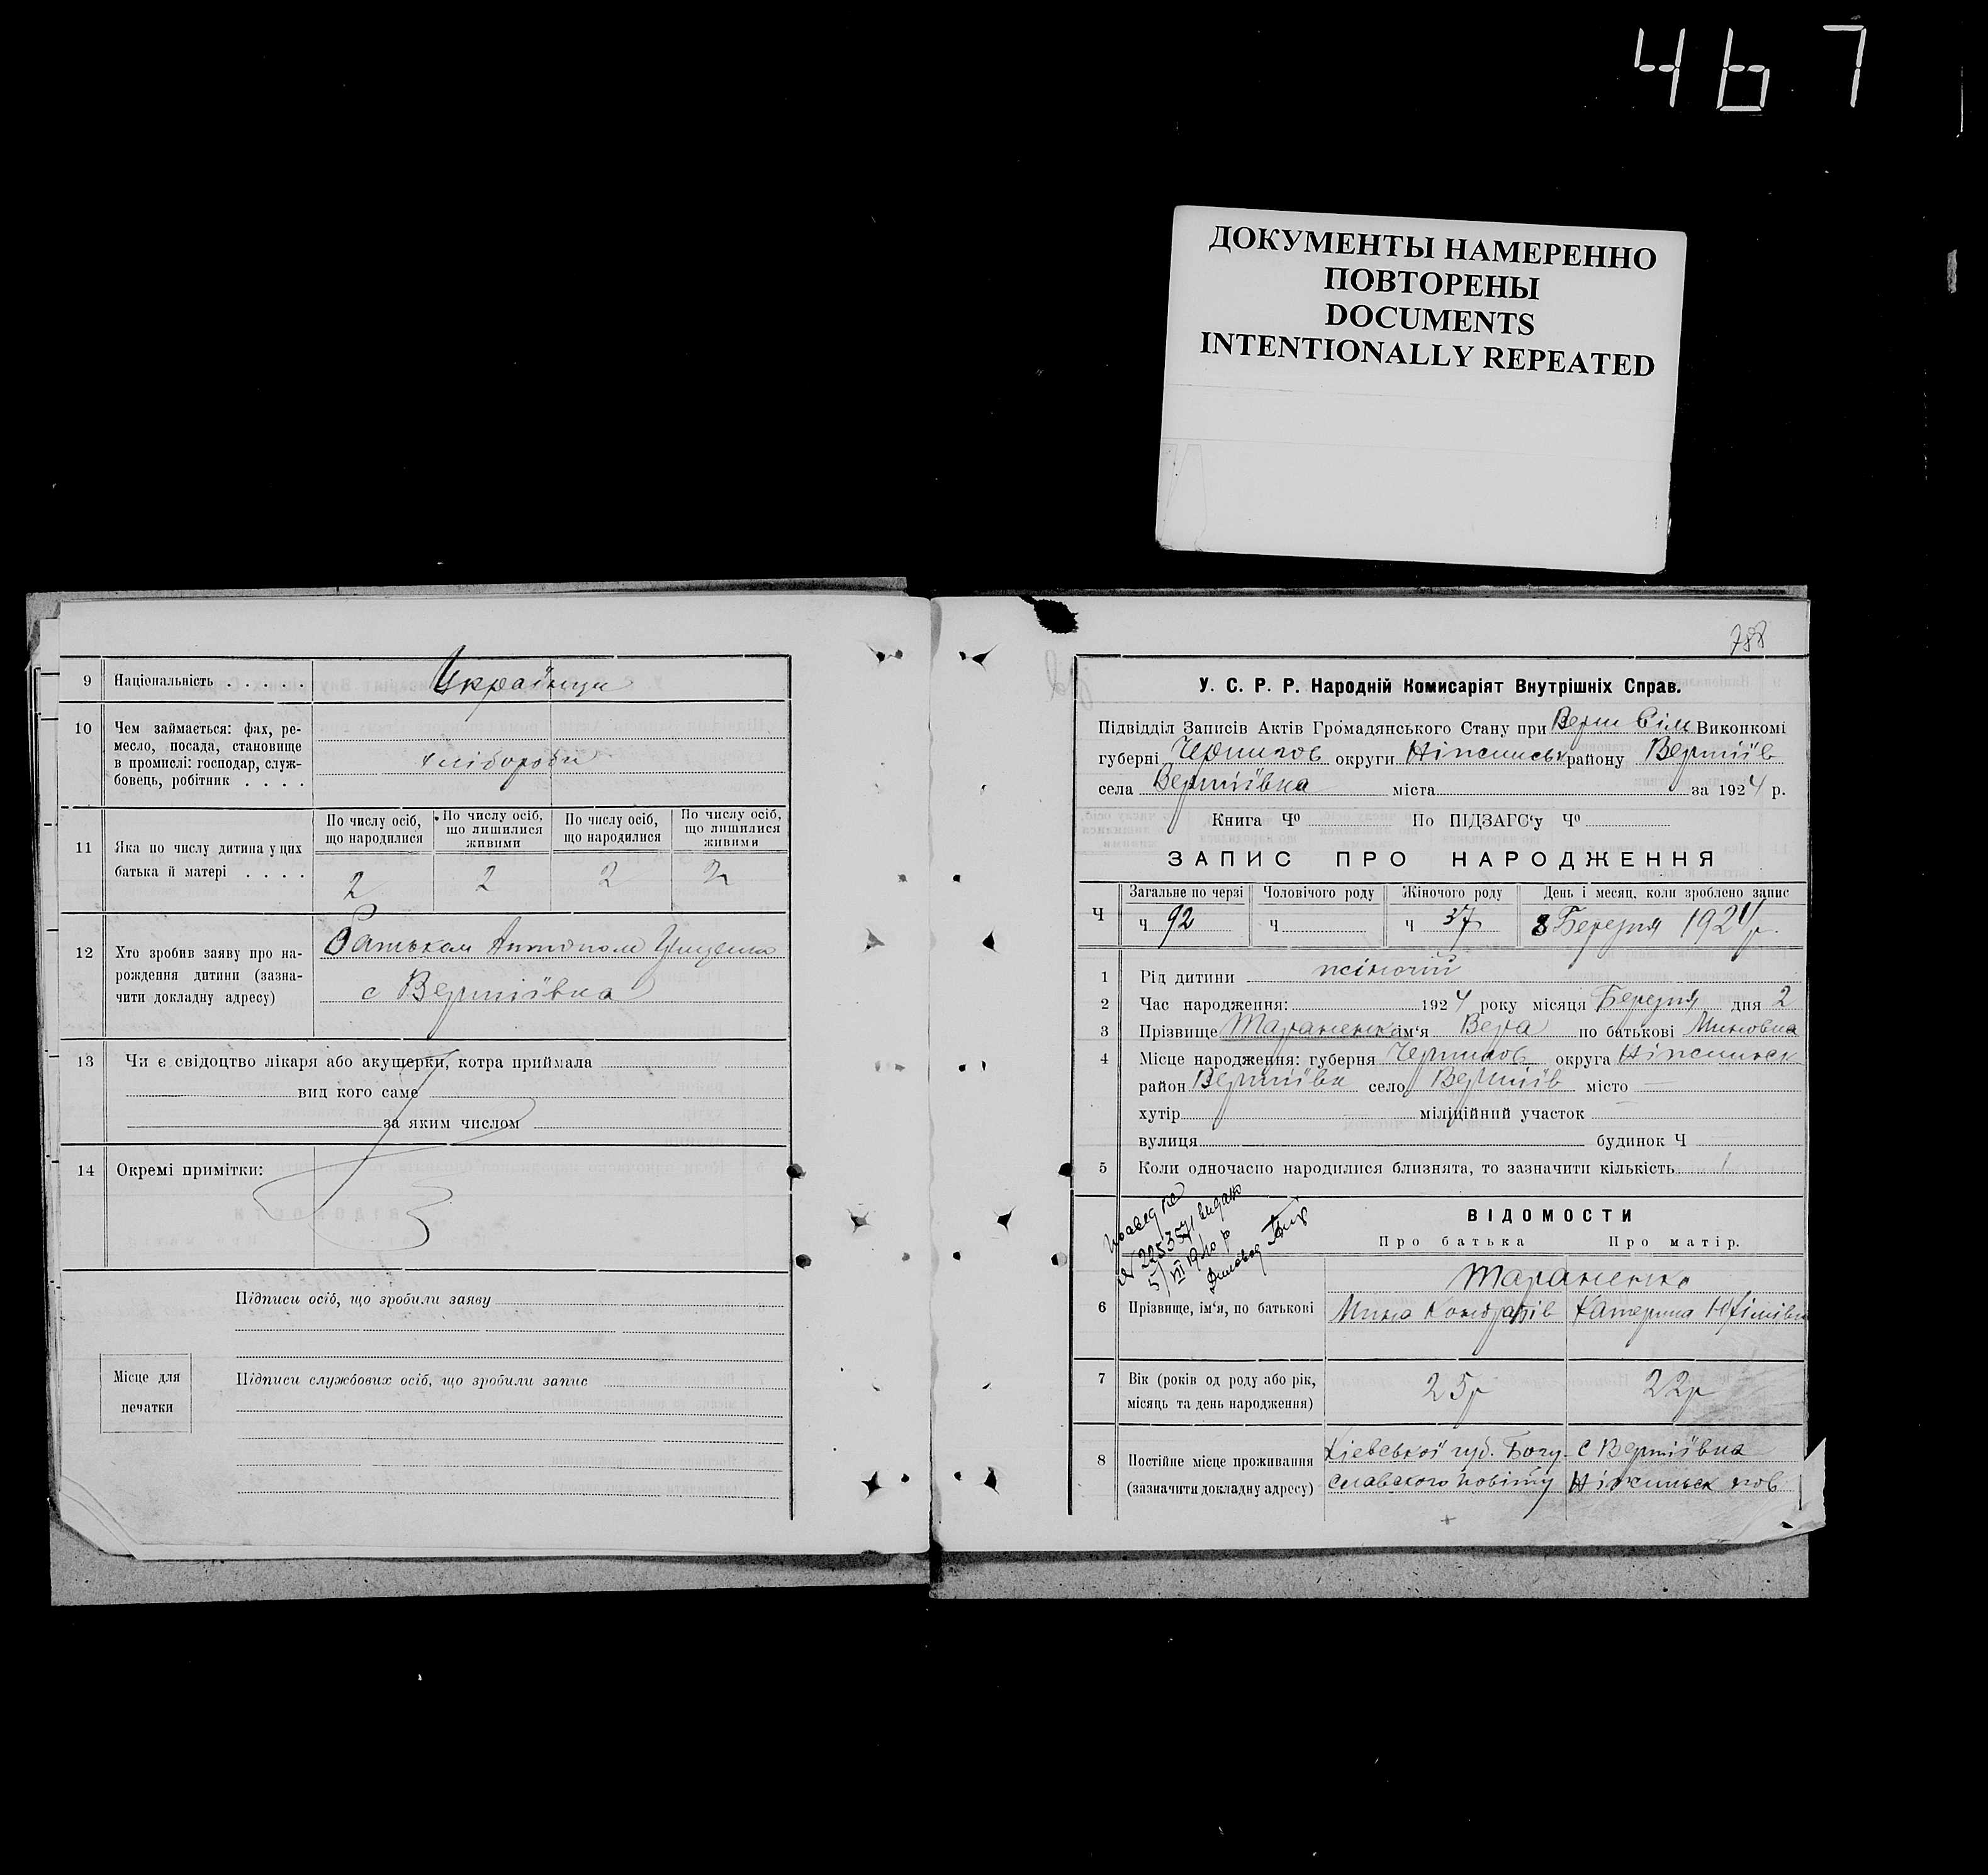 467
ДОКУМЕНТЫ НАМЕРЕННО
ПОВТОРЕНЫ
DOCUMENTS
INTENTIONALLY REPEATED
9 Національність . . . . . . Українци
10 Чем займається: фах, ре-
месло, посада, становище
в промислі: господар, служ-
бовець, робітник . . . . хлібороби
11 Яка по числу дитина у цих
батька й матері . . . .
По числу осіб, що народилися
По числу осіб, що лишилися живими
По числу осіб, що народилися
По числу осіб, що лишилися живими
2 2 2 2
12 Хто зробив заяву про на-
рождення дитини (зазна-
чити докладну адресу)
Батьком
с Вертіївка
13 Чи є свідоцтво лікаря або акушерки, котра приймала
вид кого саме
за яким числом
14 Окремі примітки:
Підписи осіб, що зробили заяву
Місце для
печатки
Підписи службових осіб, що зробили запис
788
У. С. Р. Р. Народній Комисаріят Внутрішніх Справ.
Підвідділ Записів Актів Громадянського Стану при Верт Сіль Виконкомі
губерні Чернигов округи Ніжинськ району Вертіїв
села Вертіївка міста за 1924 р.
Книга Ч⁰ По ПІДЗАГС‘у Ч⁰
ЗАПИС ПРО НАРОДЖЕННЯ
Ч
Загальне по черзі Чоловічого роду Жіночого роду День і месяц, коли зроблено запис
Ч 92 Ч Ч 37 8 Березня 1924 р.
1 Рід дитини жіночий
2 Час народження: 1924 року місяця Березня дня 2
3 Прізвище Тараненко ім‘я Вера по батькові Миновна
4 Місце народження: губерня Чернигов округа Ніжинськ
район Вертіївк село Вертіїв місто
хутір міліційний участок
вулиця будинок Ч
5 Коли одночасно народилися близнята, то зазначити кількість 1
225354 видано
5/VII 1940 р
ВІДОМОСТИ
Про батька Про матір.
Тараненко
6 Прізвище, ім‘я, по батькові Мина Кондратів Катерина
7 Вік (років од роду або рік,
місяць та день народження) 25 р 22 р
8 Постійне місце проживання
(зазначити докладну адресу)
Кіевської губ. Богу-
славського повіту
с Вертіївка
Ніжинськ пов